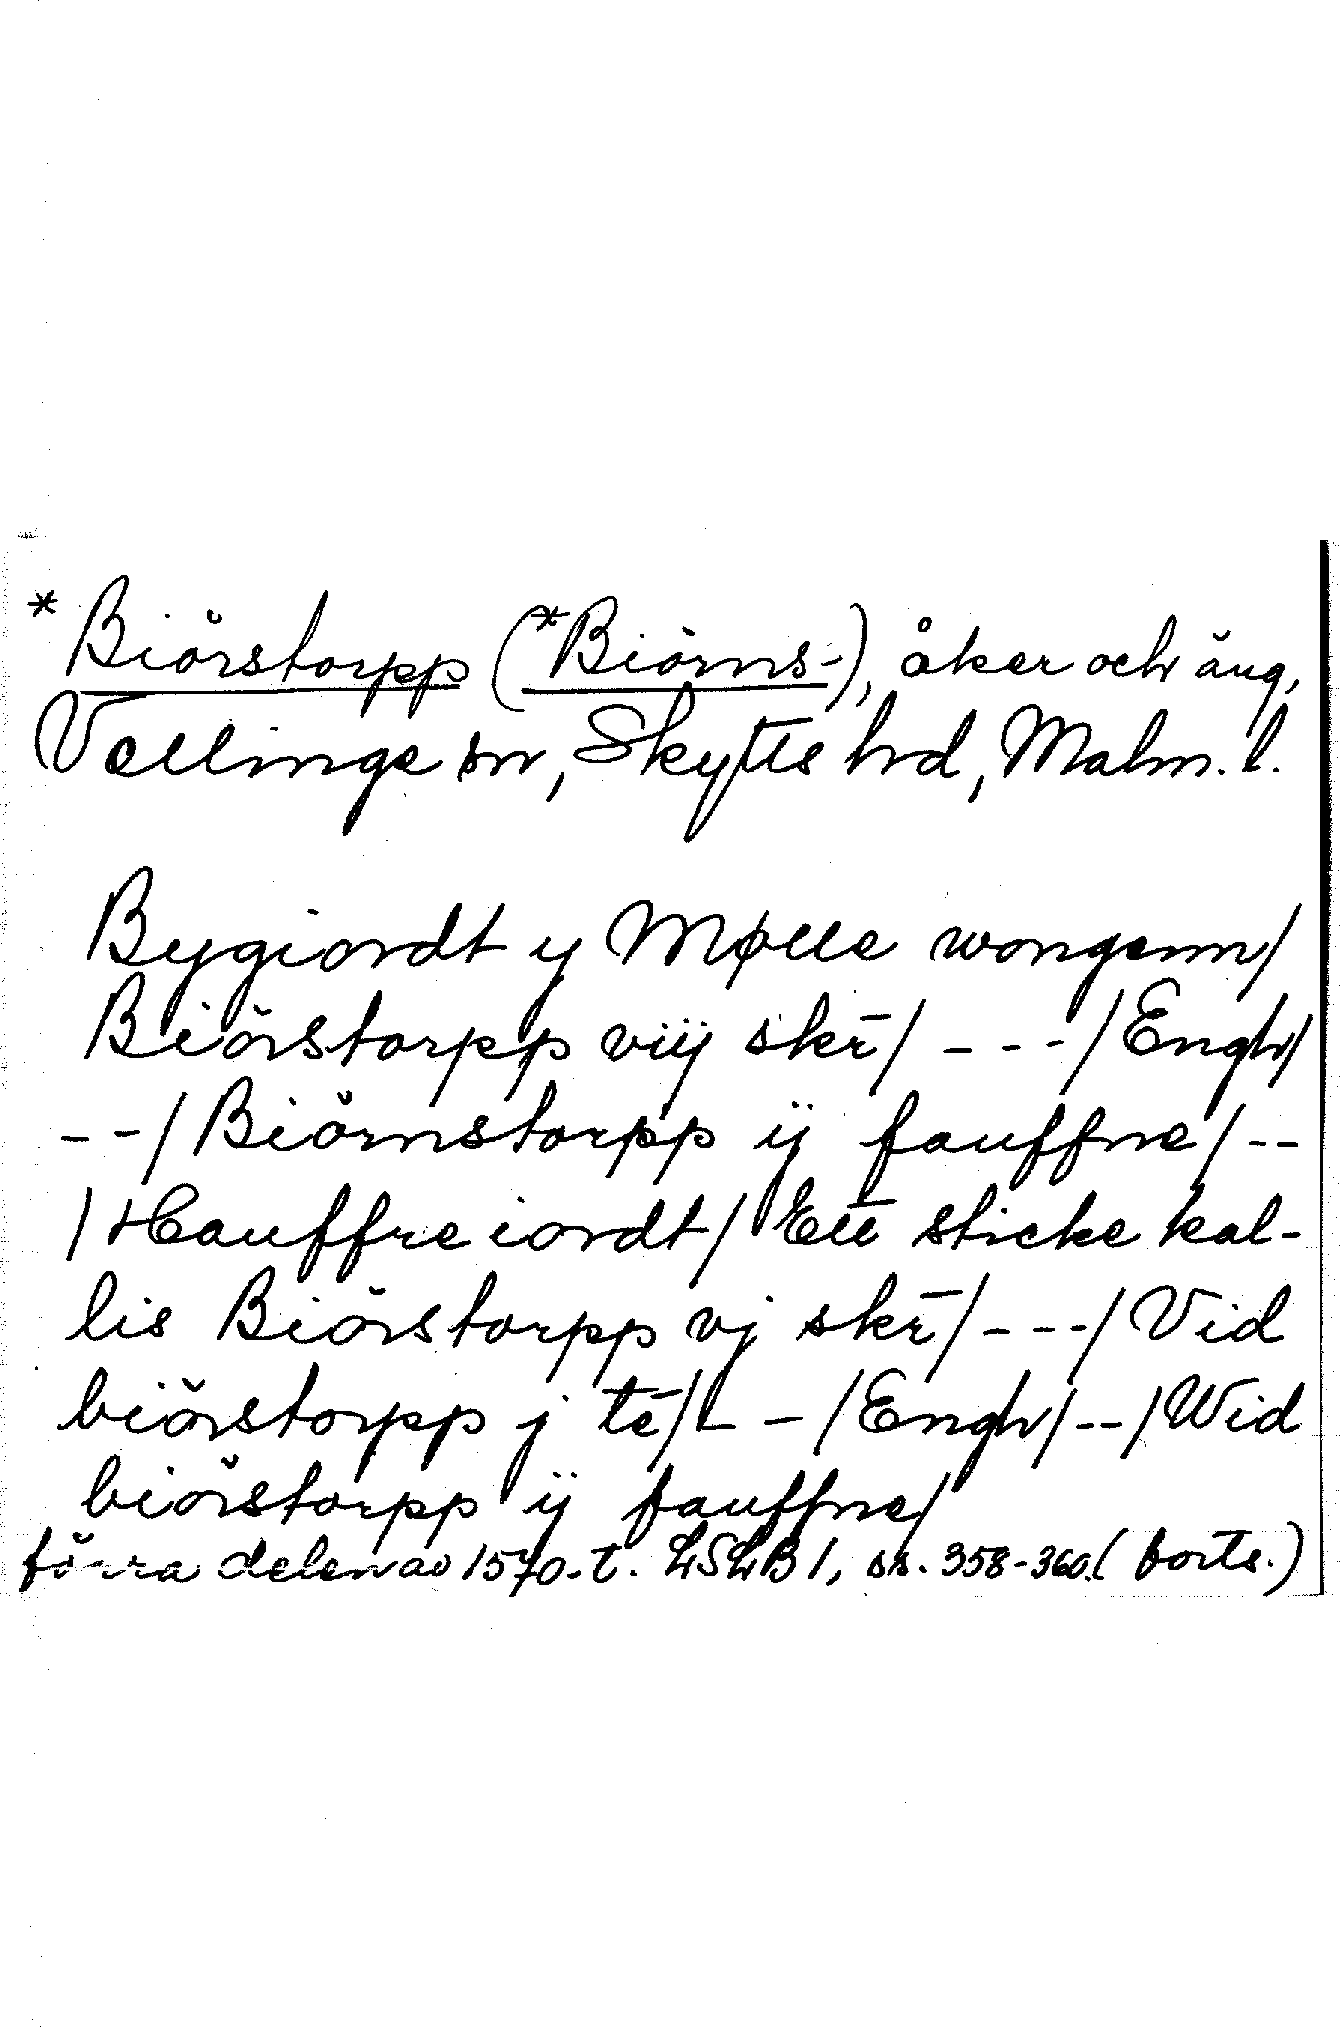 *Biörstorpp (*Biörns-), åker och äng,
Vellinge sn, Skytts hrd, Malm. l.
Bygiordt y Mølle wongenn/
Biörstorpp viij skr̄/ ---/Engh/
--/Biörnstorpp ij fauffne/--
/Hauffre iordt/ Ett sticke kal-
lis Biörstorpp vj skr̄/---/Vid
biörstorpp j tē/--/Engh/--/Wid
biörstorpp ij fauffne/
förra delen av 1570-t. LSLB 1, ss. 358-360. (forts.)